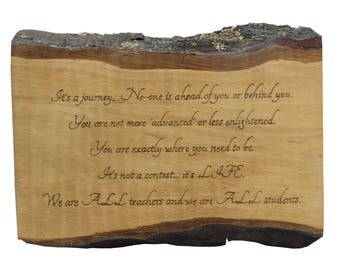 It's a journey. No-one is ahead of you or behind you.
You are not more 'advanced' or less enlightened.
You are exactly where you need to be.
It's not a contest... it's LIFE.
We are ALL teachers and we are ALL students.